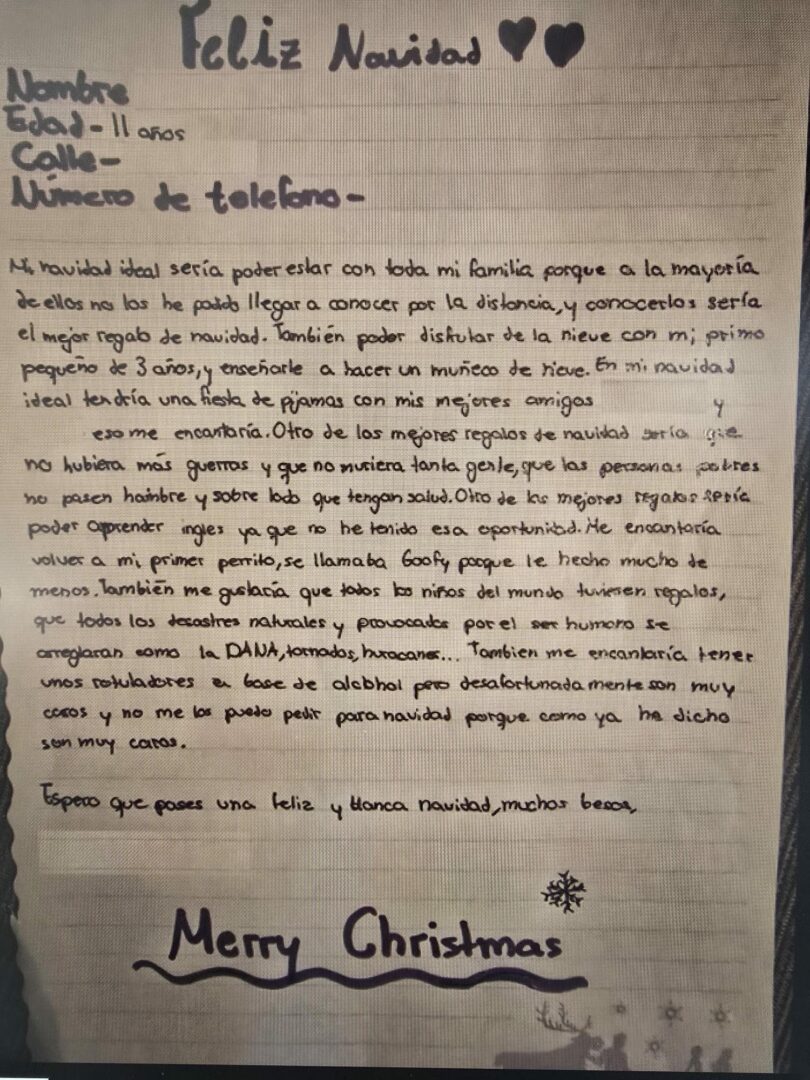 Feliz Navidad
Nombre
Edad - 11 años
Calle -
Número de telefono -
Mi navidad ideal sería poder estar con toda mi familia porque a la mayoría
de ellos no los he podido llegar a conocer por la distancia, y conocerlos sería
el mejor regalo de navidad. También poder disfrutar de la nieve con mi primo
pequeño de 3 años, y enseñarle a hacer un muñeco de nieve. En mi navidad
ideal tendría una fiesta de pijamas con mis mejores amigos y
eso me encantaría. Otro de los mejores regalos de navidad sería que
no hubiera más guerras y que no muriera tanta gente, que las personas pobres
no pasen hambre y sobre todo que tengan salud. Otro de los mejores regalos sería
poder aprender ingles ya que no he tenido esa oportunidad. Me encantaría
volver a mi primer perrito, se llamaba Goofy porque le hecho mucho de
menos. También me gustaría que todos los niños del mundo tuviesen regalos,
que todos los desastres naturales y provocados por el ser humano se
arreglaran como la DANA, tornados, huracanes... Tambien me encantaría tener
unos rotuladores a base de alcohol pero desafortunadamente son muy
caros y no me los puedo pedir para navidad porque como ya he dicho
son muy caros.
Espero que pases una feliz y blanca navidad, muchos besos,
Merry Christmas